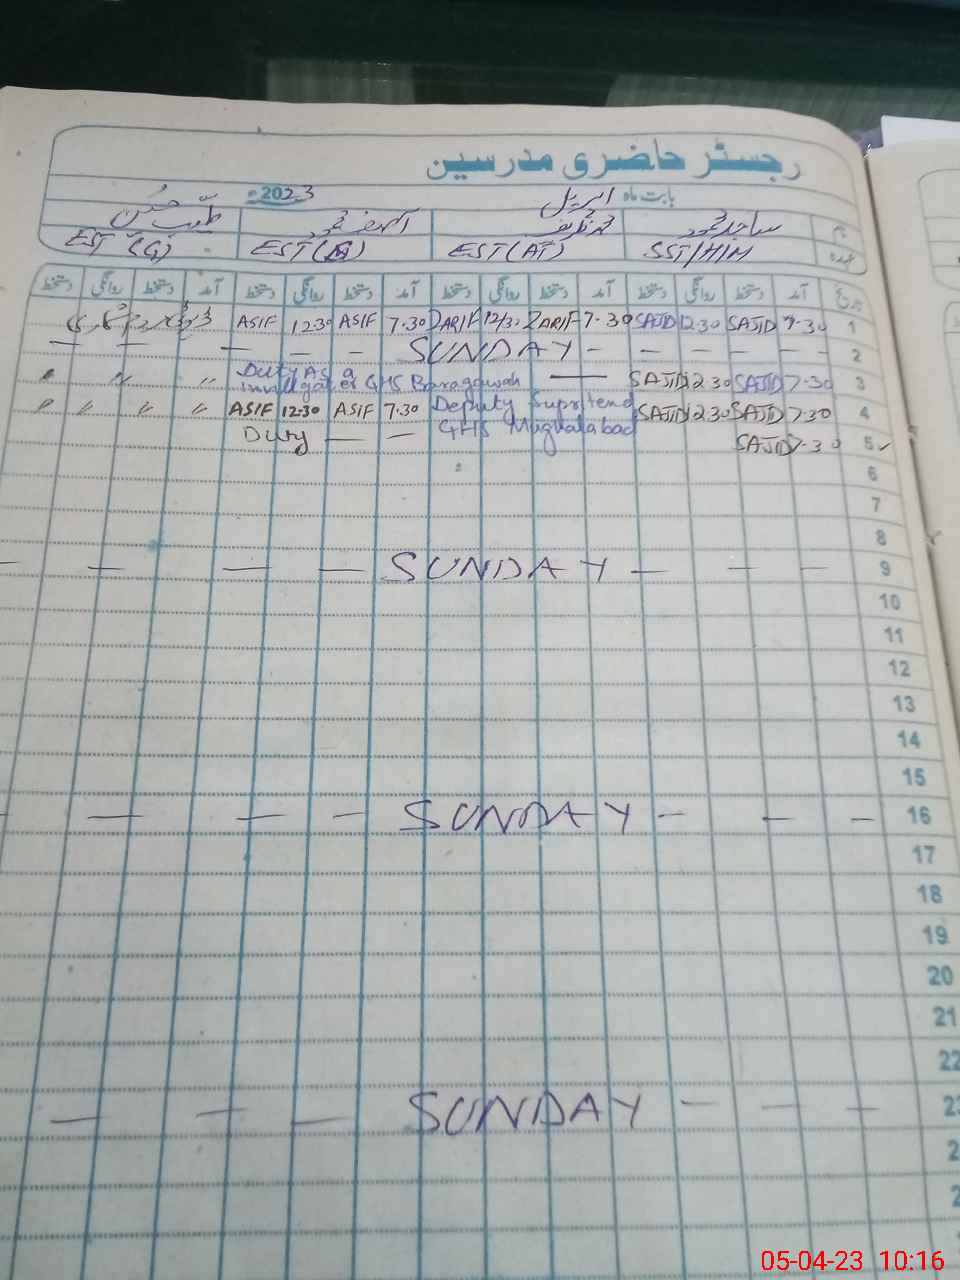 رجسٹر حاضری مدرسین
بابت ماہ اپریل 2023ء
نام ساجد محمود محمد ظریف آصف محمود طیب حسین
عہدہ SST/H/M EST(AT) EST( ) EST (G)
تاریخ آمد دستخط روانگی دستخط آمد دستخط روانگی دستخط آمد دستخط روانگی دستخط آمد دستخط روانگی دستخط
1 7.30 SAJID 12.30 SAJID 7.30 ZARIF 12/30 ZARIF 7.30 ASIF 12.30 ASIF
2 — — — SUNDAY - — — — —
3 7.30 SAJID 12.30 SAJID — Duty As a
invidgater GHS Baragowah " "
4 7.30 SAJID 12.30 SAJID Deputy Suprtend 7.30 ASIF 12.30 ASIF " " " "
5 7.30 SAJID GHS Mughalabad — — Duty
6
7
8
9 — — — — SUNDAY — — —
10
11
12
13
14
15
16 — — — SUNDAY — — —
17
18
19
20
21
22
23 — — — SUNDAY — — —
05-04-23 10:16